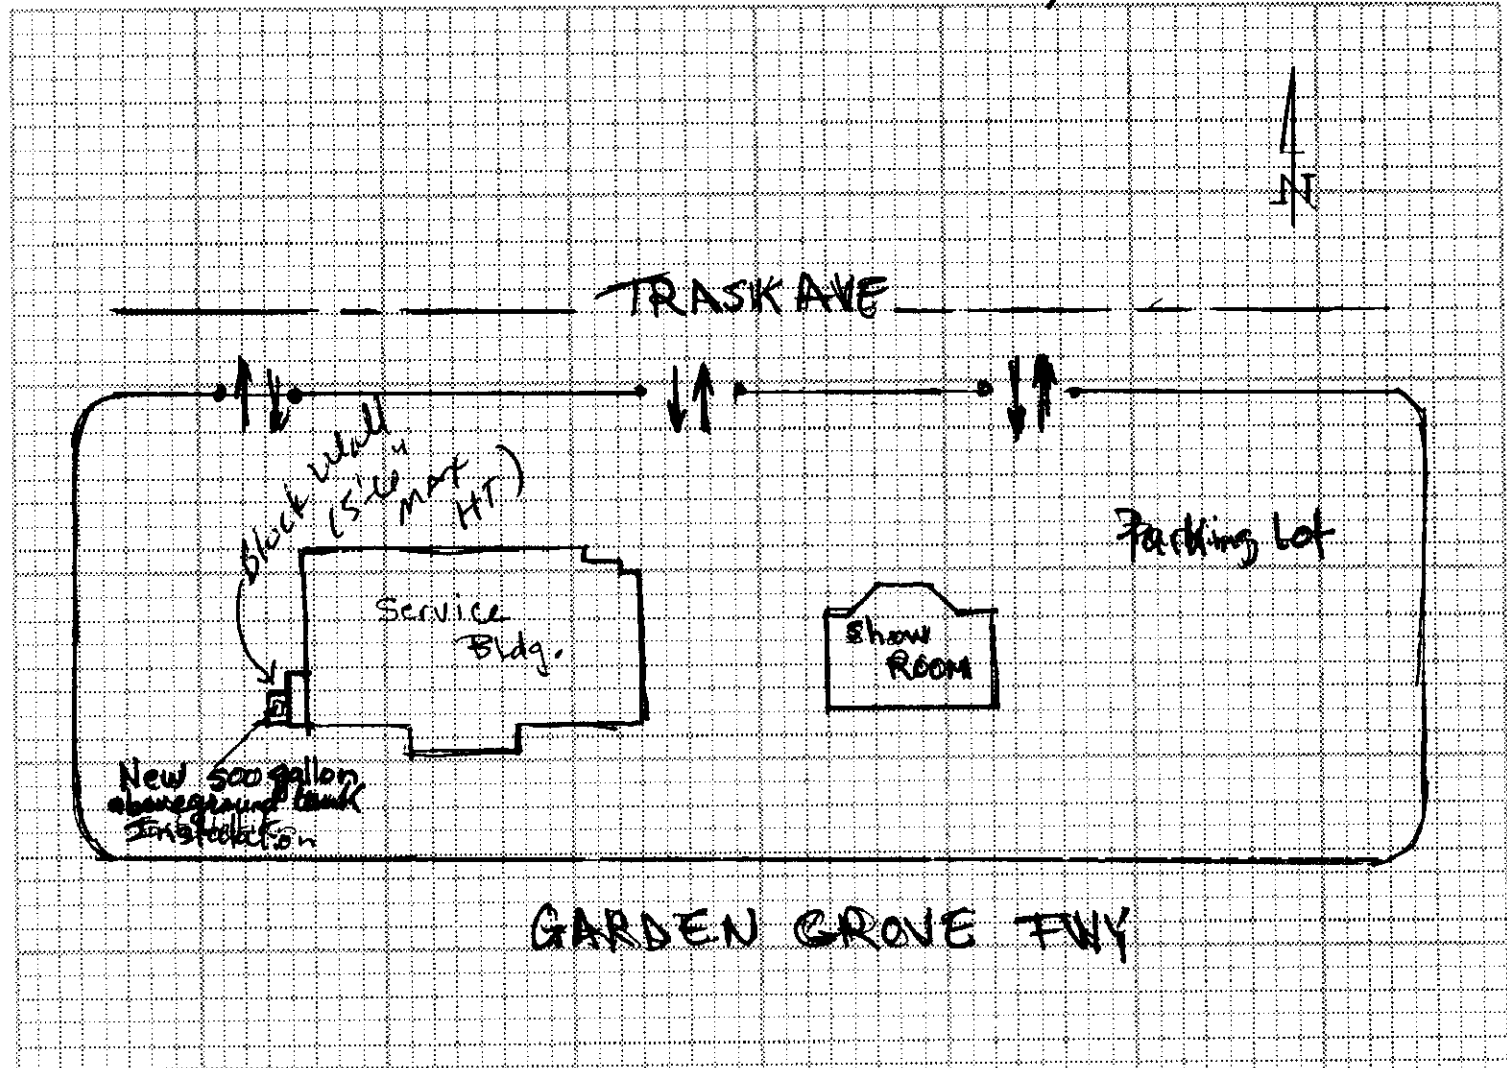 N
TRASK AVE
Block wall
MAX
HT)
Parking Lot
Service
Bldg.
Show
ROOM
New 500 gallon
aboveground tank
Installation
GARDEN GROVE FWY